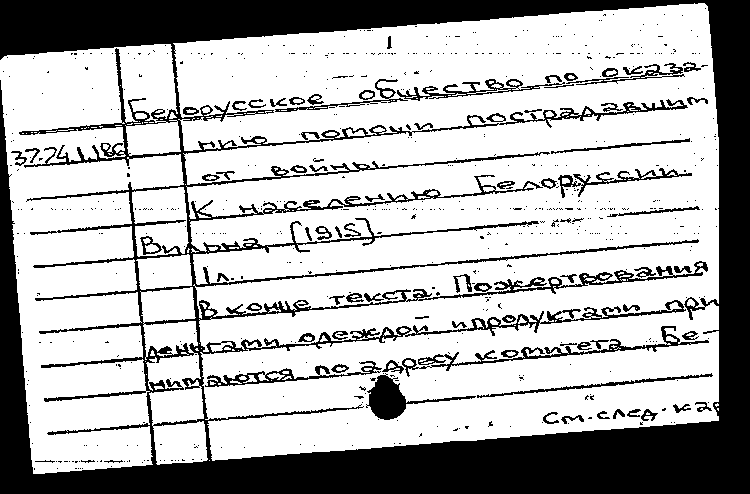 1
Белорусское общество по оказа-
37.74.1.186 нию помощи пострадавшим
от войны.
К населению Белоруссии.
Вильна, [1915].
1 л.
В конце текста: Пожертвования
деньгами, одеждой и продуктами при
нимаются по адресу комитета „Бе-
См. след. кар